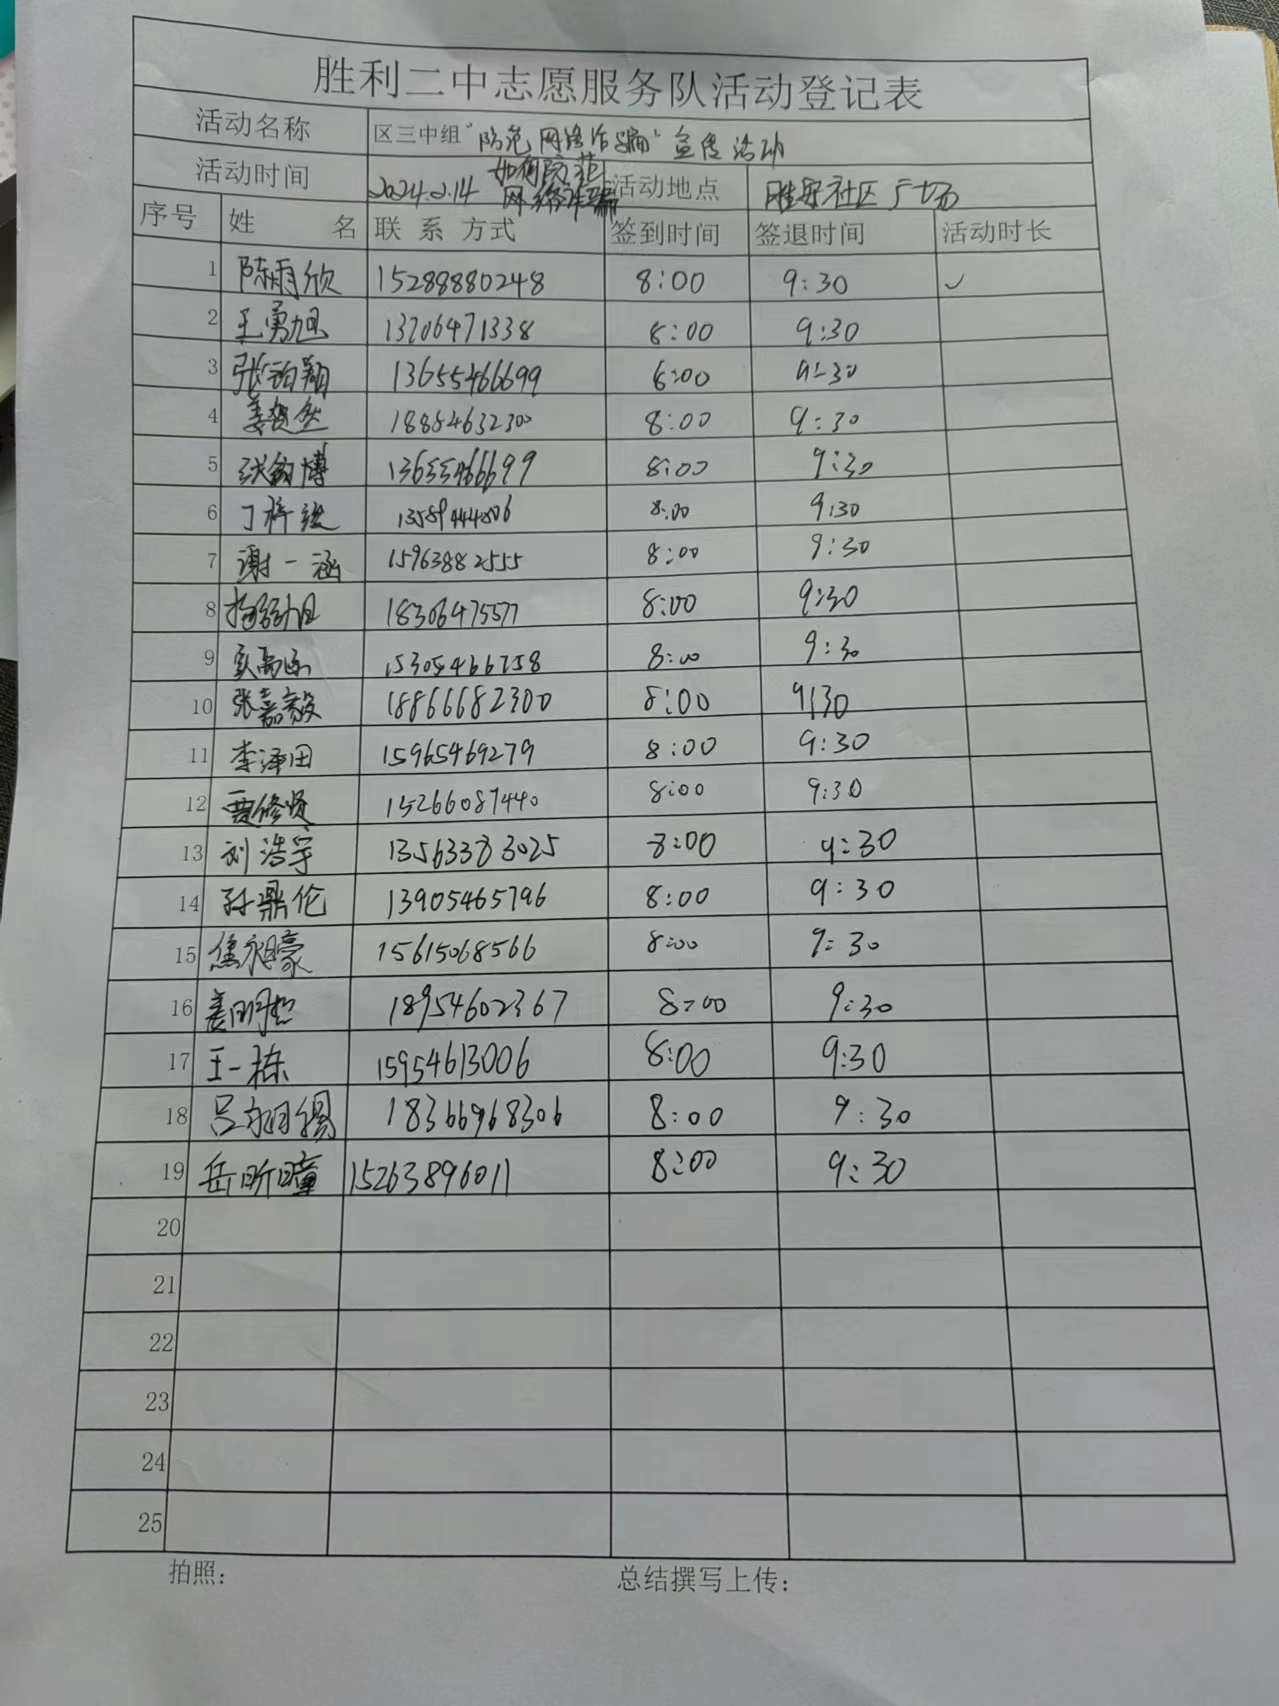 胜利二中志愿服务队活动登记表
活动名称 区三中组“防范网络诈骗”宣传活动
活动时间 2024.2.14 如何防范网络诈骗 活动地点 社区广场
序号 姓名 联系方式 签到时间 签退时间 活动时长
1 陈雨欣 15288880248 8:00 9:30 ✓
2 王勇旭 13706471338 8:00 9:30
3 张钧翔 13655466699 8:00 9:30
4 姜贺然 18854632300 8:00 9:30
5 张钧博 13655466699 8:00 9:30
6 丁梓 13589444806 8:00 9:30
7 谢一涵 15963882555 8:00 9:30
8 18306475577 8:00 9:30
9 15305466758 8:00 9:30
10 张嘉毅 18866682300 8:00 9:30
11 李泽田 15965469279 8:00 9:30
12 贾修贤 15266087440 8:00 9:30
13 刘浩宇 13563383025 8:00 9:30
14 孙鼎伦 13905465796 8:00 9:30
15 焦昶豪 15615068566 8:00 9:30
16 姜明哲 18954602367 8:00 9:30
17 王一栋 15954613006 8:00 9:30
18 吕翊锡 18366968306 8:00 9:30
19 岳昕曈 15263896011 8:00 9:30
20
21
22
23
24
25
拍照： 总结撰写上传：